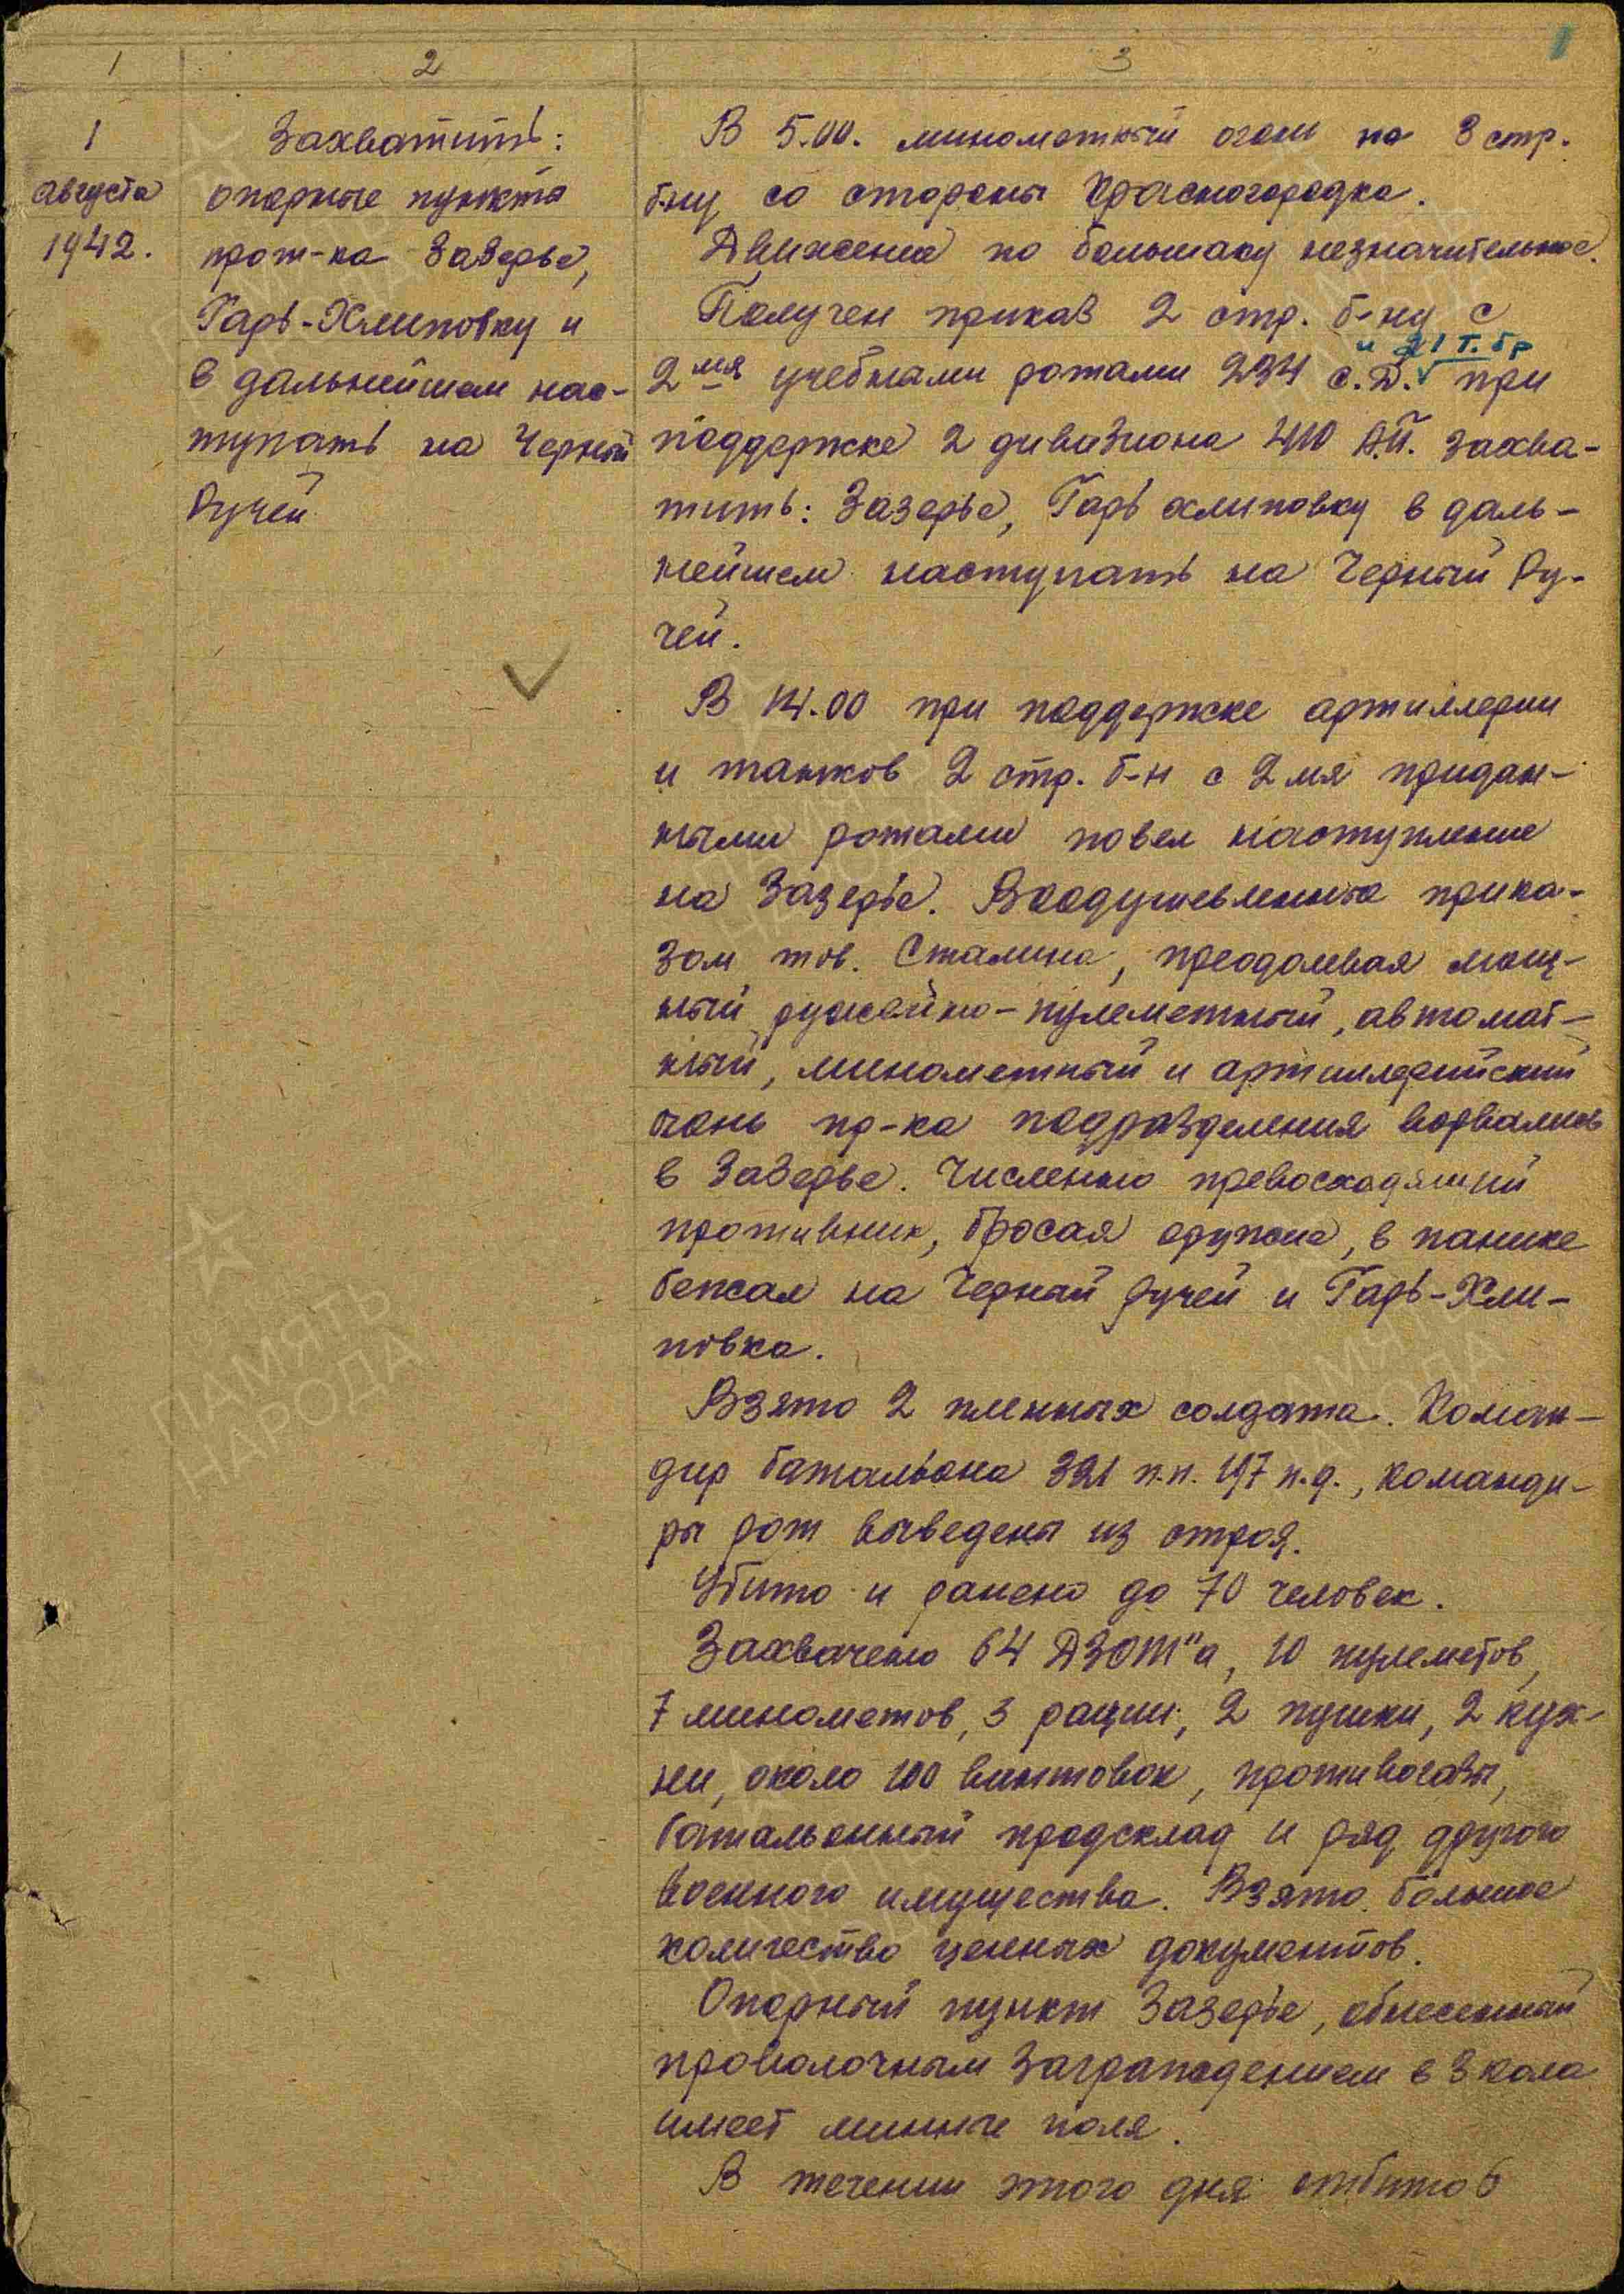 1 2 3
1
августа
1942.
Захватить:
опорные пункты
прот-ка Зазерье,
Гарь-Хлиповку и
в дальнейшем нас-
тупать на Черный
Ручей
В 5.00. минометный огонь по 3 стр.
б-ну со стороны Красногородка.
Движение по большаку незначительное.
Получен приказ 2 стр. б-ну с
и 21 т. бр
2мя учебными ротами 234 с.д. при
поддержке 2 дивизиона 410 А.П. захва-
тить: Зазерье, Гарь хлиповку в даль-
нейшем наступать на Черный Ру-
чей.
В 14.00 при поддержке артиллерии
и танков 2 стр. б-н с 2мя придан-
ными ротами повел наступление
на Зазерье. Воодушевленные прика-
зом тов. Сталина, преодолевая мощ-
ный ружейно-пулеметный, автомат-
ный, минометный и артиллерийский
огонь пр-ка подразделения ворвались
в Зазерье. Численно превосходящий
противник, бросая оружие, в панике
бежал на Черный ручей и Гарь-Хли-
повка.
Взято 2 пленных солдата. Коман-
дир батальона 321 п.п. 197 п.д., команди-
ры рот выведены из строя.
Убито и ранено до 70 человек.
Захвачено 64 ДЗОТ"а, 10 пулеметов,
7 минометов, 3 рации, 2 пушки, 2 кух-
ни, около 100 винтовок, противогазы,
батальонный продсклад и ряд другого
военного имущества. Взято большое
количество ценных документов.
Опорный пункт Зазерье, обнесенный
проволочным заграждением в 3 кола
имеет минные поля.
В течении этого дня отбито 6
ПАМЯТЬ
НАРОДА